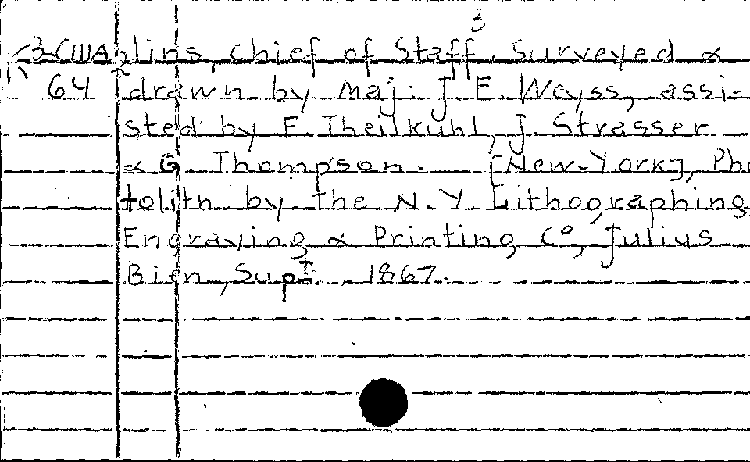 3
3-CWA lins, chief of Staff. Surveyed &
64 drawn by Maj. J. E. Weyss, assi-
sted by F. Theilkuhl, J. Strasser
& G. Thompson. [New-York], Pho
tolith by the N.Y. Lithographing,
Engraving & Printing Co, Julius
Bien, Supt. 1867.